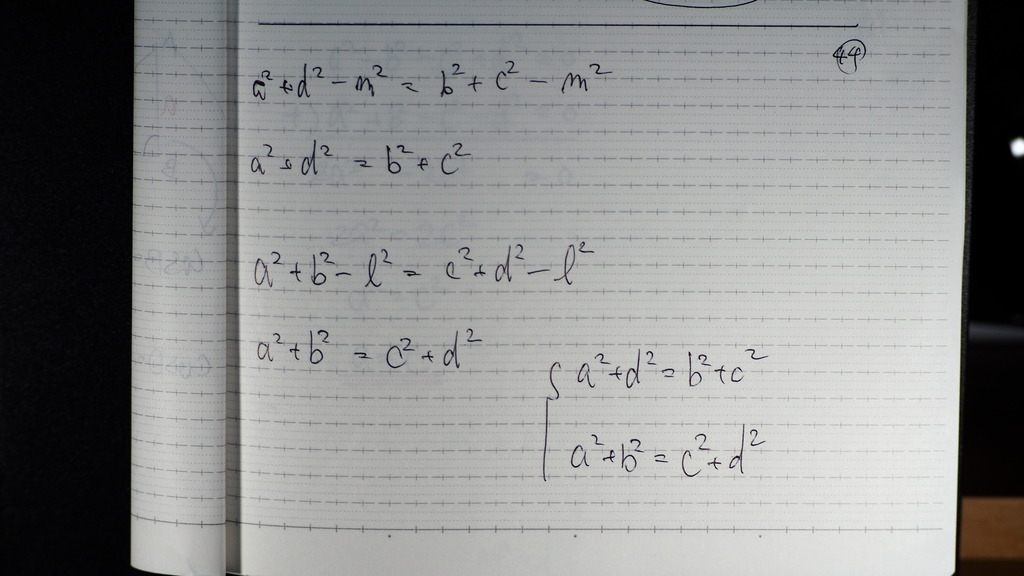 44
a² + d² - m² = b² + c² - m²
a² + d² = b² + c²
a² + b² - l² = c² + d² - l²
a² + b² = c² + d²
a² + d² = b² + c²
a² + b² = c² + d²